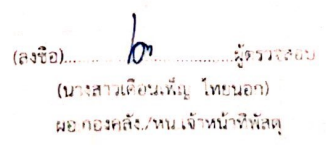 (ลงชื่อ)....................ผู้ตรวจสอบ
(นางสาวเดือนเพ็ญ ไทยนอก)
ผอ.กองคลัง/หน.เจ้าหน้าที่พัสดุ